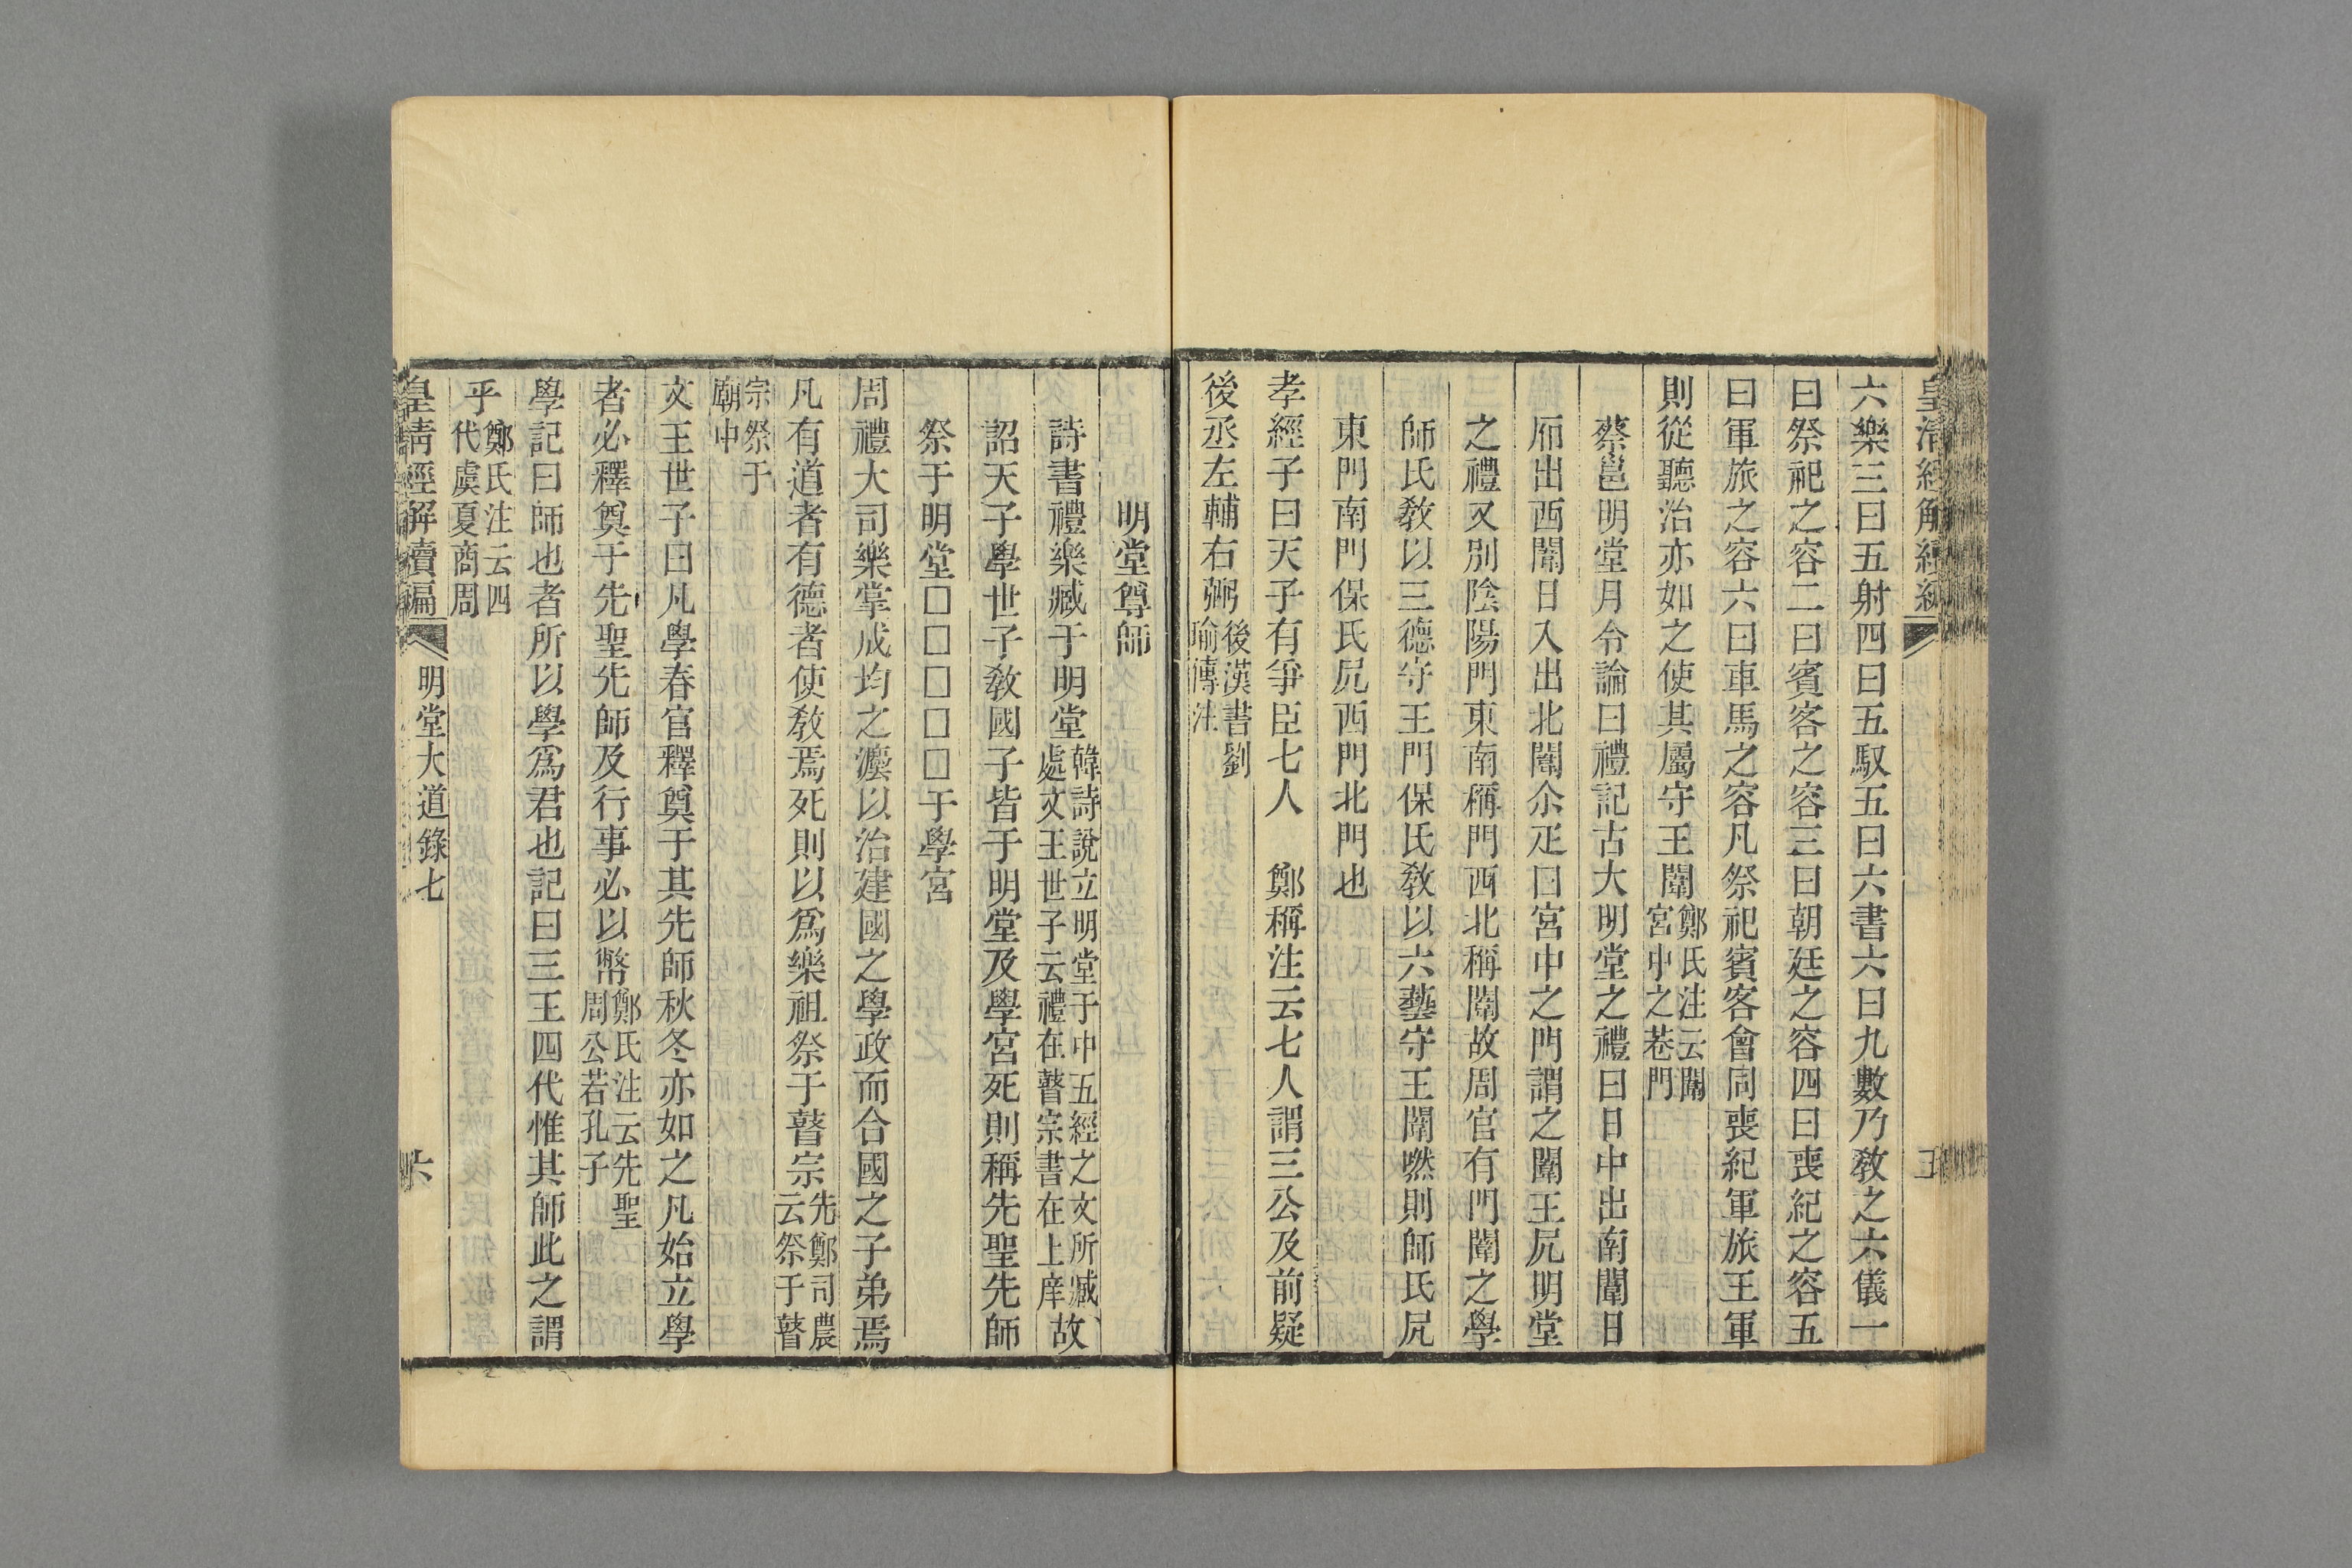 皇清經解續編
五
六樂三曰五射四曰五馭五曰六書六曰九數乃敎之六儀一
曰祭祀之容二曰賓客之容三曰朝廷之容四曰喪紀之容五
曰軍旅之容六曰車馬之容凡祭祀賓客會同喪紀軍旅王軍
則從聽治亦如之使其屬守王闈鄭氏注云闈宮中之巷門
蔡邕明堂月令論曰禮記古大明堂之禮曰日中出南闈日
𠂈出西闈日入出北闈尒疋曰宮中之門謂之闈王凥明堂
之禮又別陰陽門東南稱門西北稱闈故周官有門闈之學
師氏敎以三德守王門保氏敎以六藝守王闈㬗則師氏凥
東門南門保氏凥西門北門也
孝經子曰天子有爭臣七人 鄭稱注云七人謂三公及前疑
後丞左輔右弼後漢書劉瑜傳注
明堂尊師
詩書禮樂臧于明堂韓詩說立明堂于中五經之文所臧處文王世子云禮在瞽宗書在上庠故
詔天子學世子敎國子皆于明堂及學宮死則稱先聖先師
祭于明堂□□□□□于學宮
周禮大司樂掌成均之灋以治建國之學政而合國之子弟焉
凡有道者有德者使敎焉死則以爲樂祖祭于瞽宗先鄭司農云祭于瞽
宗祭于廟中
文王世子曰凡學春官釋奠于其先師秋冬亦如之凡始立學
者必釋奠于先聖先師及行事必以幣鄭氏注云先聖周公若孔子
學記曰師也者所以學爲君也記曰三王四代惟其師此之謂
乎鄭氏注云四代虞夏商周
皇淸經解續編
明堂大道錄七
六